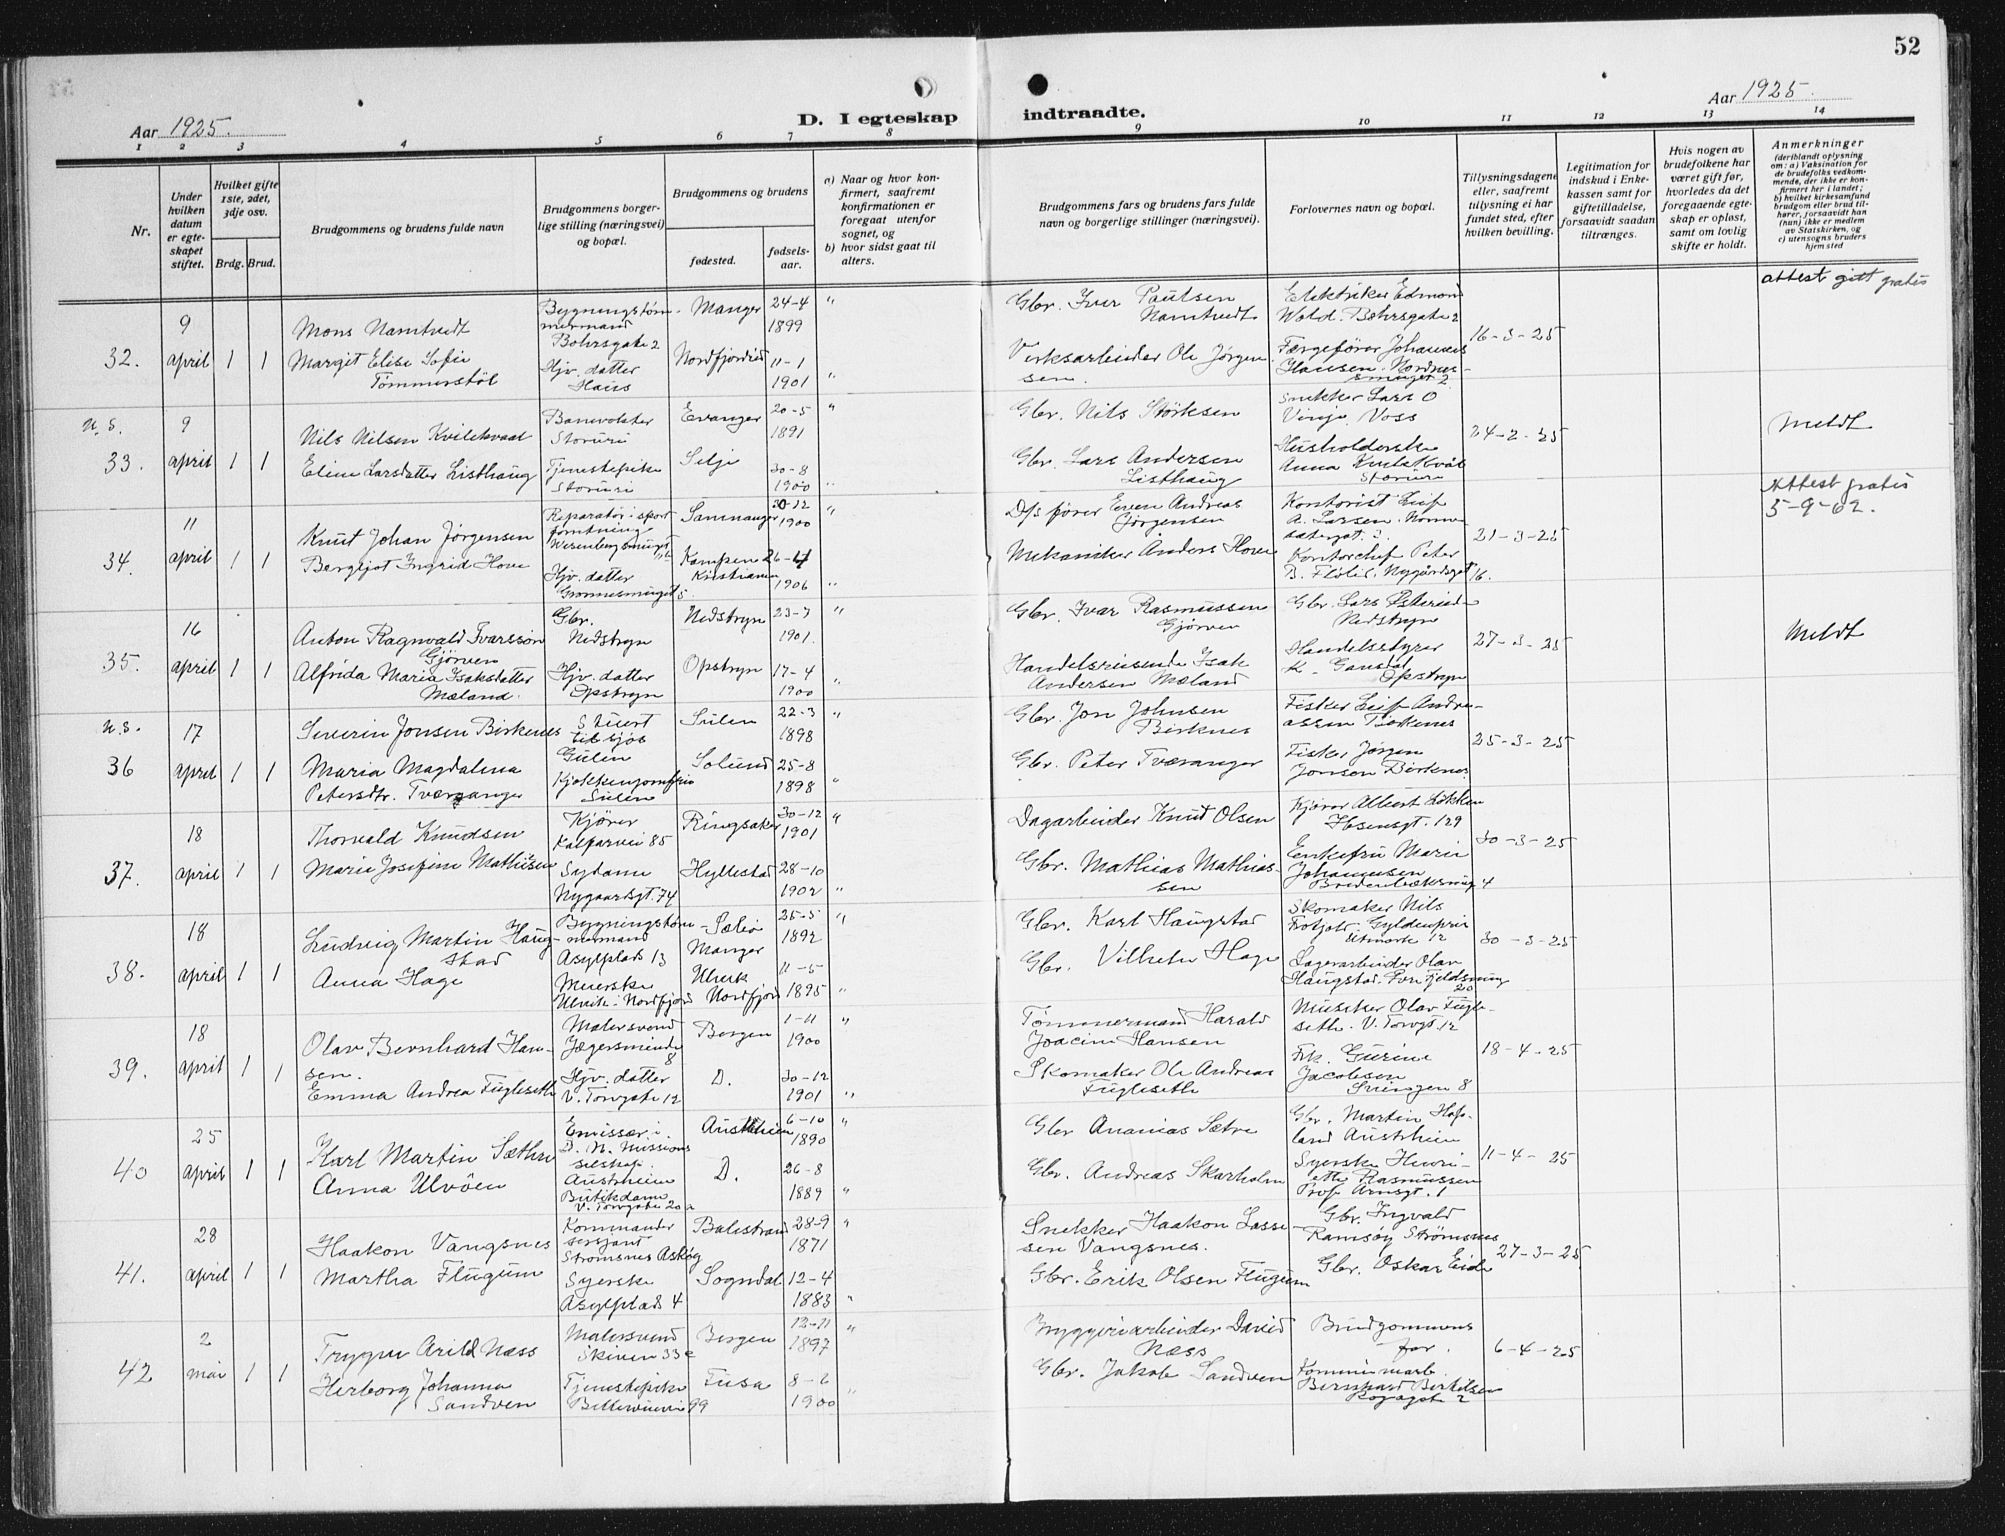 52
Aar 1925.
D. I egteskap
indtraadte.
Aar 1925.
1 2 3 4 5 6 7 8 9 10 11 12 13 14
Nr.
Under hvilken datum er egteskapet stiftet.
Hvilket gifte 1ste, 2det, 3dje osv.
Brdg. Brud.
Brudgommens og brudens fulde navn
Brudgommens borgerlige stilling (næringsvei) og bopæl.
Brudgommens og brudens
fødested.
fødselsaar.
a) Naar og hvor konfirmert, saafremt konfirmationen er foregaat utenfor sognet, og
b) hvor sidst gaat til alters.
Brudgommens fars og brudens fars fulde navn og borgerlige stillinger (næringsvei).
Forlovernes navn og bopæl.
Tillysningsdagene eller, saafremt tillysning ei har fundet sted, efter hvilken bevilling.
Legitimation for indskud i Enkekassen samt for giftetilladelse, forsaavidt saadan tiltrænges.
Hvis nogen av brudefolkene har været gift før, hvorledes da det foregaaende egteskap er opløst, samt om lovlig skifte er holdt.
Anmerkninger
(deriblandt oplysning om: a) Vaksination for de brudefolks vedkommende, der ikke er konfirmert her i landet; b) hvilket kirkesamfund brudgom eller brud tilhører, forsaavidt han (hun) ikke er medlem av Statskirken, og c) utensogns bruders hjemsted
32. 9 april 1 1
Mons Namtvedt
Margit Elise Sofie Tømmerstøl
Bygningstømmermand Bohrsgate 2
Hjv. datter Haus
Manger 24-4 1899 "
Nordfjordeid 11-1 1901 "
Gbr. Iver Paulsen Namtvedt
Verksarbeider Ole Jørgensen.
Elektriker Edmond Wold. Bøhrsgate 2
Færgefører Johannes Hansen. Nordnessmuget 2
16-3-25
attest gitt gratis
u.s. 33. 9 april 1 1
Nils Nilsen Kvilekvaal
Eline Larsdatter Listhaug
Banevokter Storuri
Tjenestepike Storuri
Evanger 20-5 1891 "
Selje 30-8 1900 "
Gbr. Nils Størksen
Gbr. Lars Andersen Listhaug
Snekker Lars O Vinje Voss
Husholderske Anna Storuri
24-2-25
Meldt
34. 11 april 1 1
Knut Johan Jørgensen
Bergljot Ingrid Hove
Reparatør i sportforretning Wesenbergsmuget
Hjv. datter Grønnesmuget 5
Samnanger 30-12 1900 "
Kampen Kristiania 26-4 1906 "
D/s fører Even Andreas Jørgensen
Mekaniker Anders Hove
Kontorist Leif A. Larsen.
Kontorchef Peter B. Fløtie. Nygårdsgt 16.
21-3-25
Attest gratis 5-9-62.
35. 16 april 1 1
Anton Ragnvald Ivarssøn Gjørven
Alfrida Maria Isaksdatter Mæland.
Gbr. Nedstryn
Hjv. datter Opstryn
Nedstryn 23-7 1901. "
Opstryn 17-4 1900 "
Gbr. Ivar Rasmussen Gjørven
Handelsreisende Isak Andersen Mæland
Gbr. Lars Nedstryn
Handelsstyrer K. Opstryn
27-3-25
Meldt
u.s. 36 17 april 1 1
Severin Jonsen Birkenes
Maria Magdalena Petersdtr. Tværanger
Stuert til sjøs Gulen
Kjøkkenjomfru Sulen
Sulen 22-3 1898 "
Solund 25-8 1898 "
Gbr. Jon Johnsen Birknes
Gbr. Peter Tværanger
Fisker Leif Andreassen Birkenes
Fisker Jørgen Jonson Birknes.
25-3-25
37. 18 april 1 1
Thorvald Knudsen
Marie Josefine Mathisen
Kjører Kalfarvei 85
Sydame Nygaardsgt. 74
Ringsaker 30-12 1901 "
Hyllestad 28-10 1902 "
Dagarbeider Knut Olsen
Gbr. Mathias Mathiassen
Kjører Albert Løkken Ibsensgt. 129
Enkefru Marie Johannesen 4
30-3-25
38. 18 april 1 1
Ludvig Martin Haugstad
Anna Hage
Bygningstømmermand Asylplads 13
Meierske Ulvik i Nordfjord
Sæbø Manger 25-5 1892 "
Ulvik Nordfjord 11-5 1895 "
Gbr. Karl Haugstad
Gbr. Vilhelm Hage
Skomaker Nils 12
Lagerarbeider Olav Haugstad. 20
30-3-25
39. 18 april 1 1
Olav Bernhard Hansen.
Emma Andrea Fugleseth
Malersvend Jægersminde 8
Hjv. datter V. Torvgate 12
Bergen 1-11 1900 "
D. 30-12 1901 "
Tømmermand Harald Joacim Hansen
Skomaker Ole Andreas Fugleseth
Musiker Olav Fugleseth. V. Torvgt. 12
Frk. Gurine Jacobsen Svingen 8
18-4-25
40 25 april 1 1
Karl Martin Sæthre
Anna Ulvøen
Emissær i D. N. Missionsselskap. Austrheim
Butikdame V. Torvgate 20a
Austrheim 6-10 1890 "
D. 26-8 1889 "
Gbr Ananias Sætre
Gbr. Andreas Skarholm
Gbr. Martin Hopland Austrheim
Syerske Henriette Rasmussen Prof. Arnsgt. 1
11-4-25
41. 28 april 1 1
Haakon Vangsnes
Martha Flugum
Kommandersersjant Strømsnes Askøy
Syerske Asylplads 4
Balestrand 28-9 1871 "
Sogndal 12-4 1883 "
Snekker Haakon Lassesen Vangsnes.
Gbr. Erik Olsen Flugum
Gbr. Ingvald Ramsøy Strømsnes
Gbr. Oskar Eide
27-3-25
42 2 mai 1 1
Trygve Arild Næss
Herborg Johanna Sandven
Malersvend Skiven 33c
Tjenestepike 99
Bergen 12-11 1897 "
Fusa 8-6 1900 "
Bryggeriarbeider David Næss
Gbr. Jakob Sandven
Brudgommens far.
Kommunearb. Bernhard Berkilsen 2
6-4-25